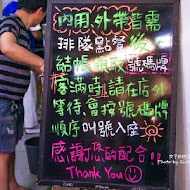 內用.外帶皆需
排隊點餐後
結帳 號碼牌
客滿時請在店外
等待,會按號碼牌
順序叫號入座
感謝您的配合!!
Thank You